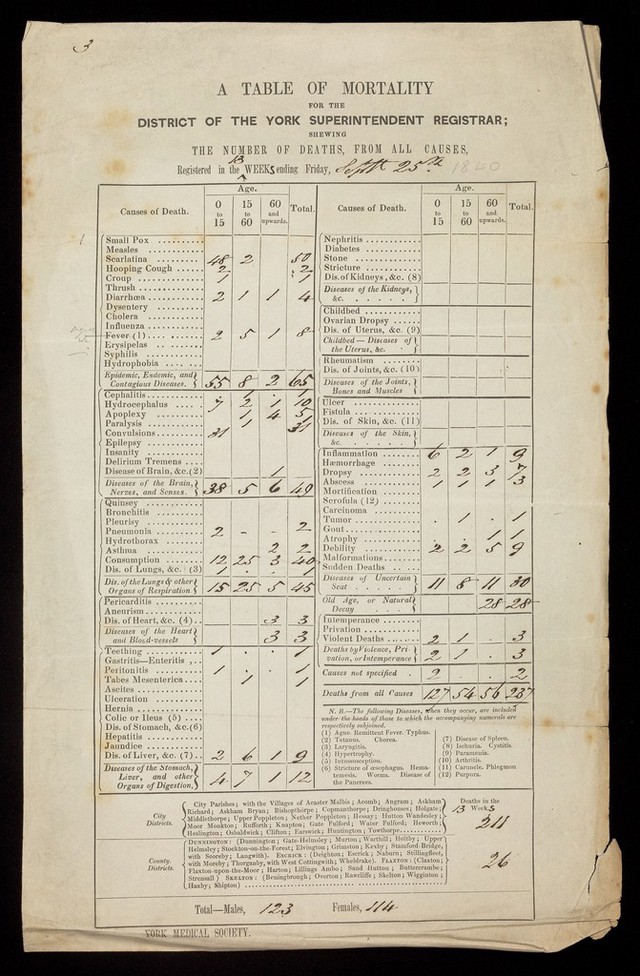 3
A TABLE OF MORTALITY
FOR THE
DISTRICT OF THE YORK SUPERINTENDENT REGISTRAR;
SHEWING
THE NUMBER OF DEATHS, FROM ALL CAUSES,
Registered in the 13 WEEKs ending Friday, Septr 25th 1840
Causes of Death. Age. 0 to 15 15 to 60 60 and upwards. Total.
Small Pox
Measles
Scarlatina 48 2 50
Hooping Cough 2 2
Croup 1 1
Thrush
Diarrhœa 2 1 1 4
Dysentery
Cholera
Influenza
Fever (1) 2 5 1 8
Erysipelas
Syphilis
Hydrophobia
Epidemic, Endemic, and Contagious Diseases. 55 8 2 65
Cephalitis
Hydrocephalus 7 2 1 10
Apoplexy 1 4 5
Paralysis 1
Convulsions 31 31
Epilepsy
Insanity
Delirium Tremens
Disease of Brain, &c. (2) 1
Diseases of the Brain, Nerves, and Senses. 38 5 6 49
Quinsey
Bronchitis
Pleurisy
Pneumonia 2 - - 2
Hydrothorax
Asthma 2 2
Consumption 12 25 3 40
Dis. of Lungs, &c. (3) 1
Dis. of the Lungs & other Organs of Respiration 15 25 5 45
Pericarditis
Aneurism
Dis. of Heart, &c. (4) 3 3
Diseases of the Heart and Blood-vessels 3 3
Teething 1 . . 1
Gastritis—Enteritis
Peritonitis 1 . . 1
Tabes Mesenterica 1 1
Ascites
Ulceration
Hernia
Colic or Ileus (5)
Dis. of Stomach, &c. (6)
Hepatitis
Jaundice
Dis. of Liver, &c. (7) 2 6 1 9
Diseases of the Stomach, Liver, and other Organs of Digestion, 4 7 1 12
Causes of Death. Age. 0 to 15 15 to 60 60 and upwards. Total.
Nephritis
Diabetes
Stone
Stricture
Dis. of Kidneys, &c. (8)
Diseases of the Kidneys, &c.
Childbed
Ovarian Dropsy
Dis. of Uterus, &c. (9)
Childbed—Diseases of the Uterus, &c.
Rheumatism
Dis. of Joints, &c. (10)
Diseases of the Joints, Bones and Muscles
Ulcer
Fistula
Dis. of Skin, &c. (11)
Diseases of the Skin, &c.
Inflammation 6 2 1 9
Hæmorrhage
Dropsy 2 2 3 7
Abscess 1 1 1 3
Mortification
Scrofula (12)
Carcinoma
Tumor . 1 . 1
Gout
Atrophy 1 1
Debility 2 2 5 9
Malformations
Sudden Deaths
Diseases of Uncertain Seat 11 8 11 30
Old Age, or Natural Decay 28 28
Intemperance
Privation
Violent Deaths 2 1 . 3
Deaths by Violence, Privation, or Intemperance 2 1 . 3
Causes not specified 2 . . 2
Deaths from all Causes 127 54 56 237
N. B.—The following Diseases, when they occur, are included
under the heads of those to which the accompanying numerals are
respectively subjoined.
(1) Ague. Remittent Fever. Typhus.
(2) Tetanus. Chorea.
(3) Laryngitis.
(4) Hypertrophy.
(5) Intussusception.
(6) Stricture of œsophagus. Hæmatemesis. Worms. Disease of the Pancreas.
(7) Disease of Spleen.
(8) Ischuria. Cystitis.
(9) Paramenia.
(10) Arthritis.
(11) Caruncle. Phlegmon
(12) Purpura.
City Districts.
City Parishes; with the Villages of Acaster Malbis; Acomb; Angram; Askham
Richard; Askham Bryan; Bishopthorpe; Copmanthorpe; Dringhouses; Holgate;
Middlethorpe; Upper Poppleton; Nether Poppleton; Hessay; Hutton Wandesley;
Moor Monkton; Rufforth; Knapton; Gate Fulford; Water Fulford; Heworth;
Heslington; Osbaldwick; Clifton; Earswick; Huntington; Towthorpe
Deaths in the 13 Weeks 211
County. Districts.
DUNNINGTON: (Dunnington; Gate-Helmsley; Murton; Warthill; Holtby; Upper
Helmsley; Stockton-on-the-Forest; Elvington; Grimston; Kexby; Stamford-Bridge,
with Scoreby; Langwith). ESCRICK: (Deighton; Escrick; Naburn; Stillingfleet,
with Moreby; Thorganby, with West Cottingwith; Wheldrake). FLAXTON: (Claxton;
Flaxton-upon-the-Moor; Harton; Lillings Ambo; Sand Hutton; Buttercrambe;
Strensall) SKELTON: (Beningbrough; Overton; Rawcliffe; Skelton; Wigginton;
Haxby; Shipton)
26
Total—Males, 123 Females, 114
YORK MEDICAL SOCIETY.